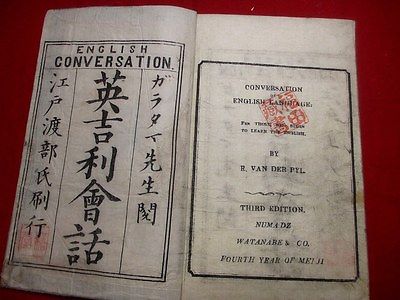 ENGLISH
CONVERSATION.
ガラタマ先生閲
英吉利會話
江戸渡部氏刷行
CONVERSATION
ENGLISH LANGUAGE;
FOR THOSE WHO BEGIN
TO LEARN THE ENGLISH.
BY
R. VAN DER PYL.
THIRD EDITION.
NUMADZ
WATANABE & CO.
FOURTH YEAR OF MEIJI